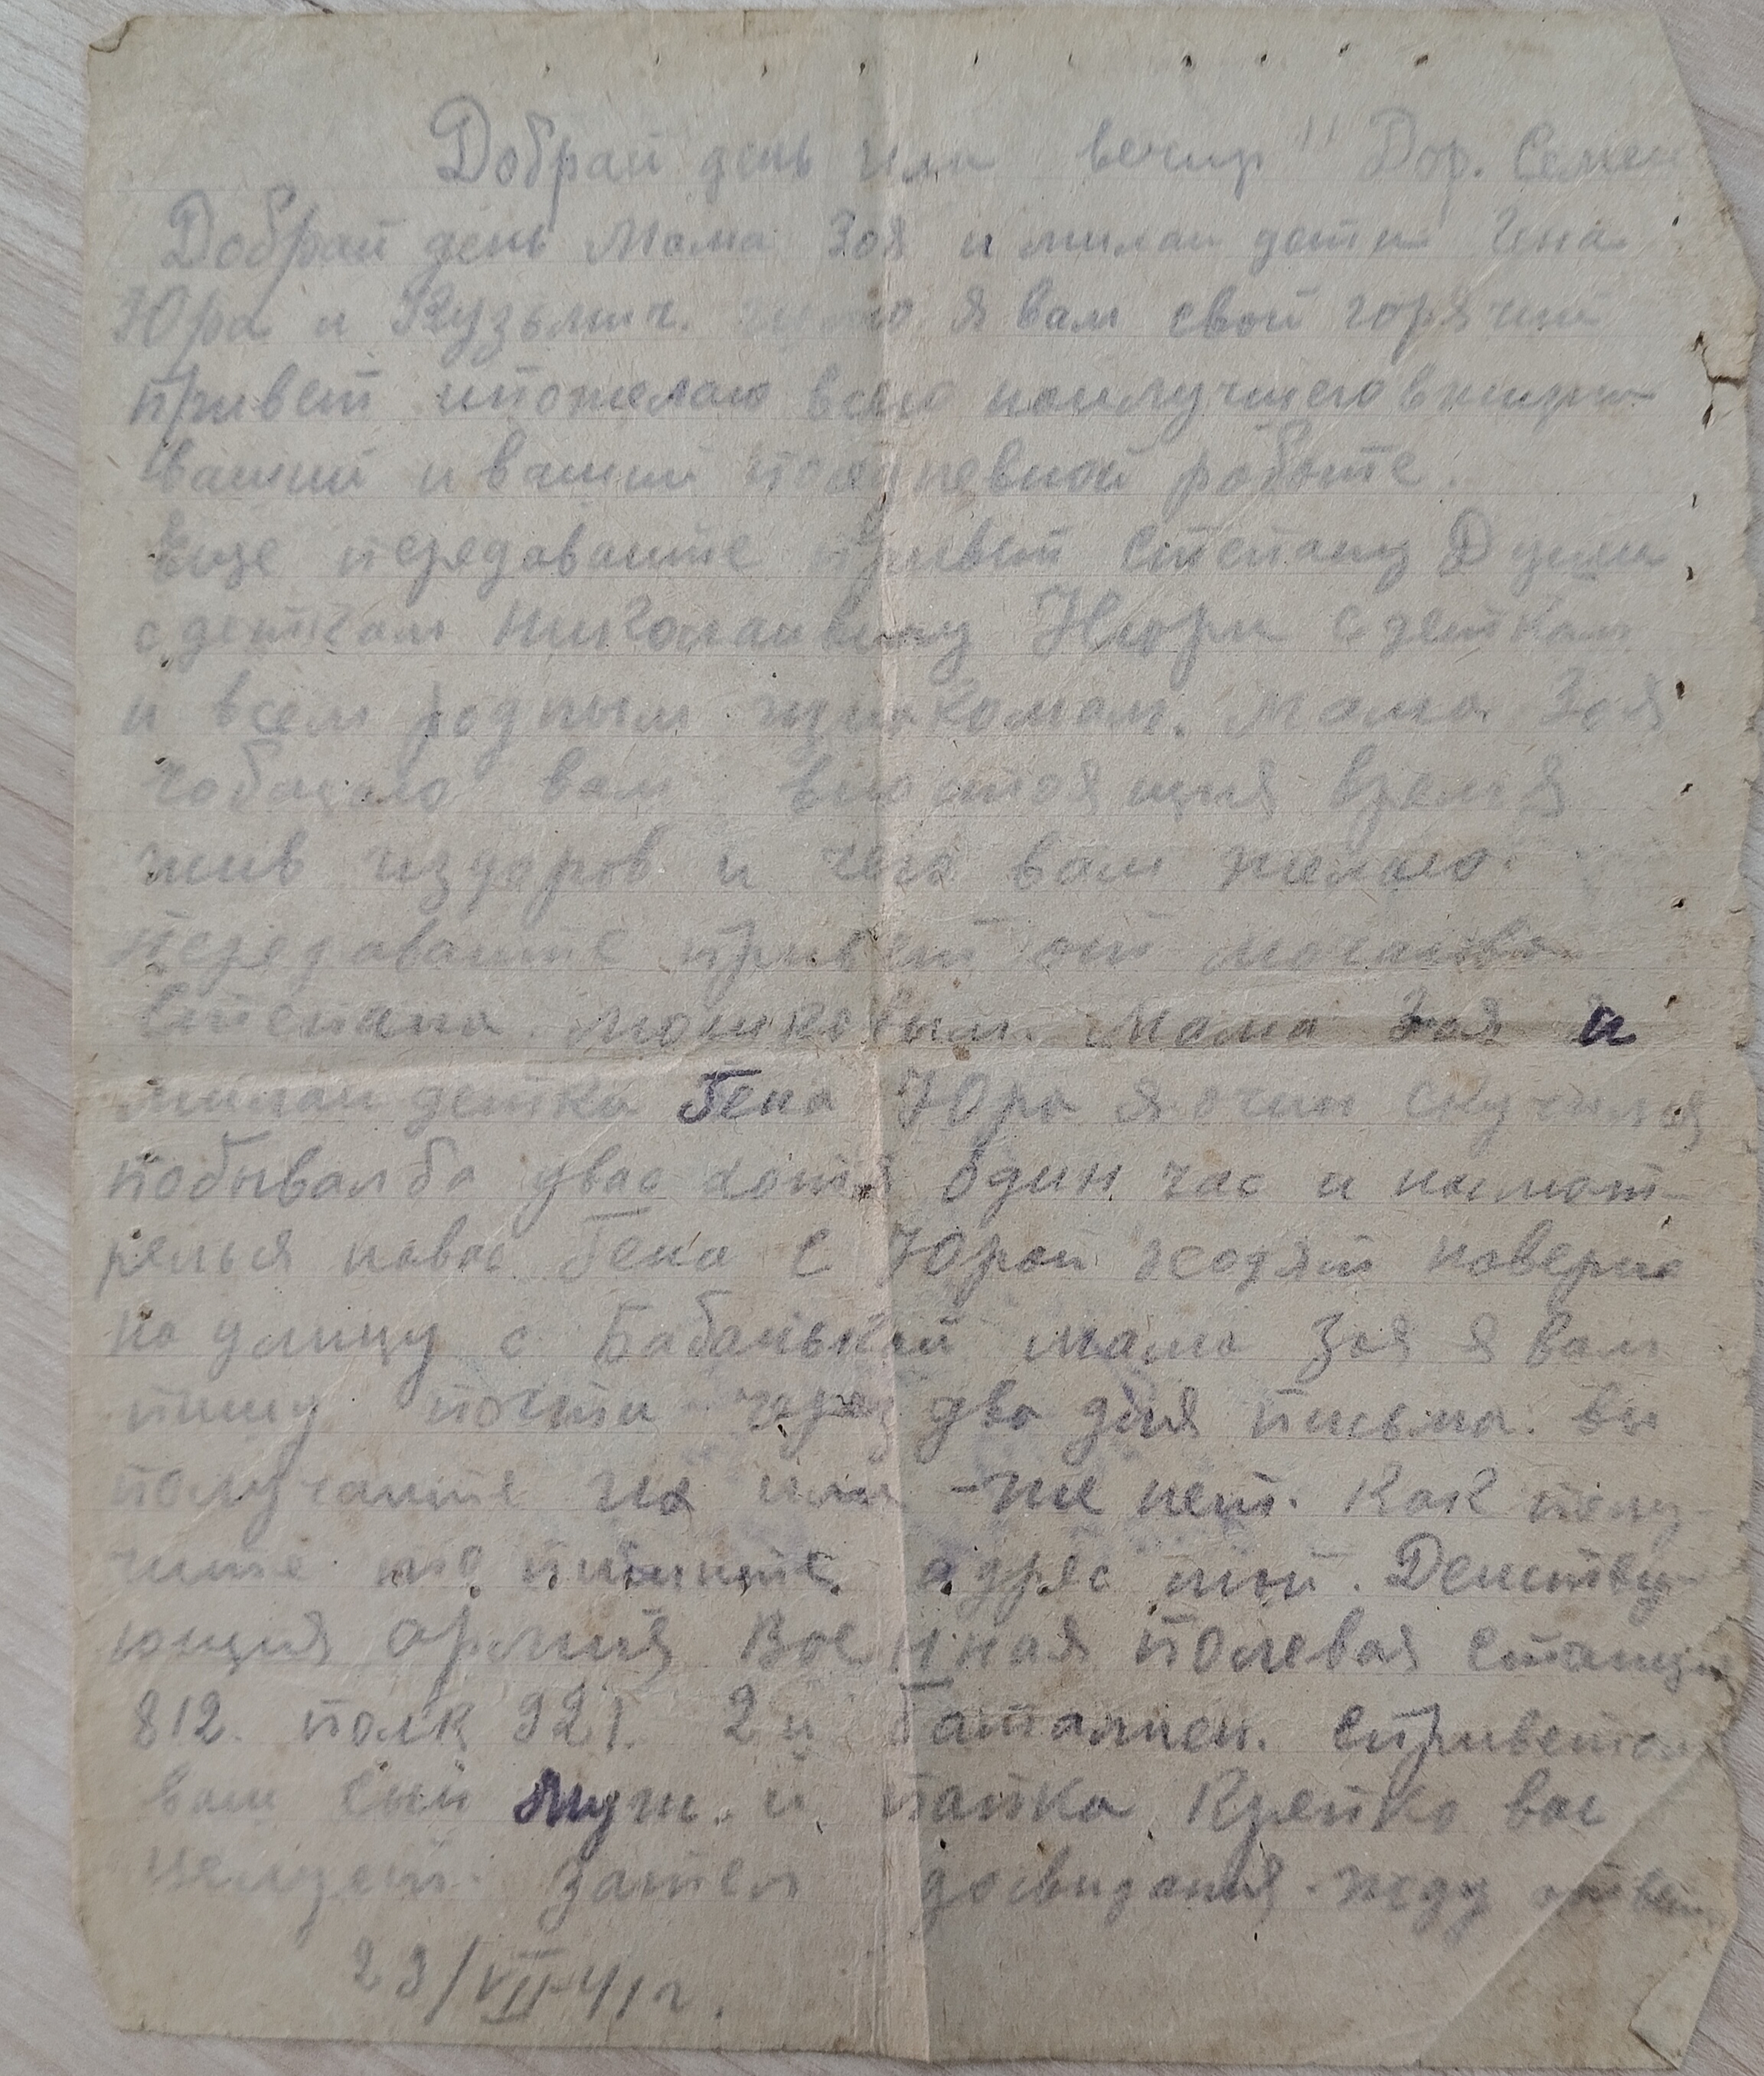 Добрай день или вечир" Дор. Семен
Добрай день Мама Зоя и милаи дети Гена
Юра и Кузьмич. я вам свой горячий
привет ипожелаю всего наилучшего вжизни
вашии и вашии поедневной работе.
Еще передоваите привет Степану Души
сдеткам Нюри сдеткам
и всем родным знакомам. Мама Зоя
вам внастоящия время
жив издоров и чего вам желаю.
Передоваите привет от
Степана Мама Зоя и
милаи детки Гена Юра я очин скучился
побывал ба увас хотя один час и насмот-
релься навас Гена с Юрой ходят наверна
на улицу с Бабанькай мама Зоя я вам
пишу почти через два дня письма. вы
получаите их или -же нет. Как полу-
чите то пишите адрес мой. Деиству-
ющия армия Военная полевая станция
812. полк 921. 2й баталиен. сприветом
ваш сын муж. и папка. Крепко вас
целует. затем досвидания. жду ответ
23/VII-41г.